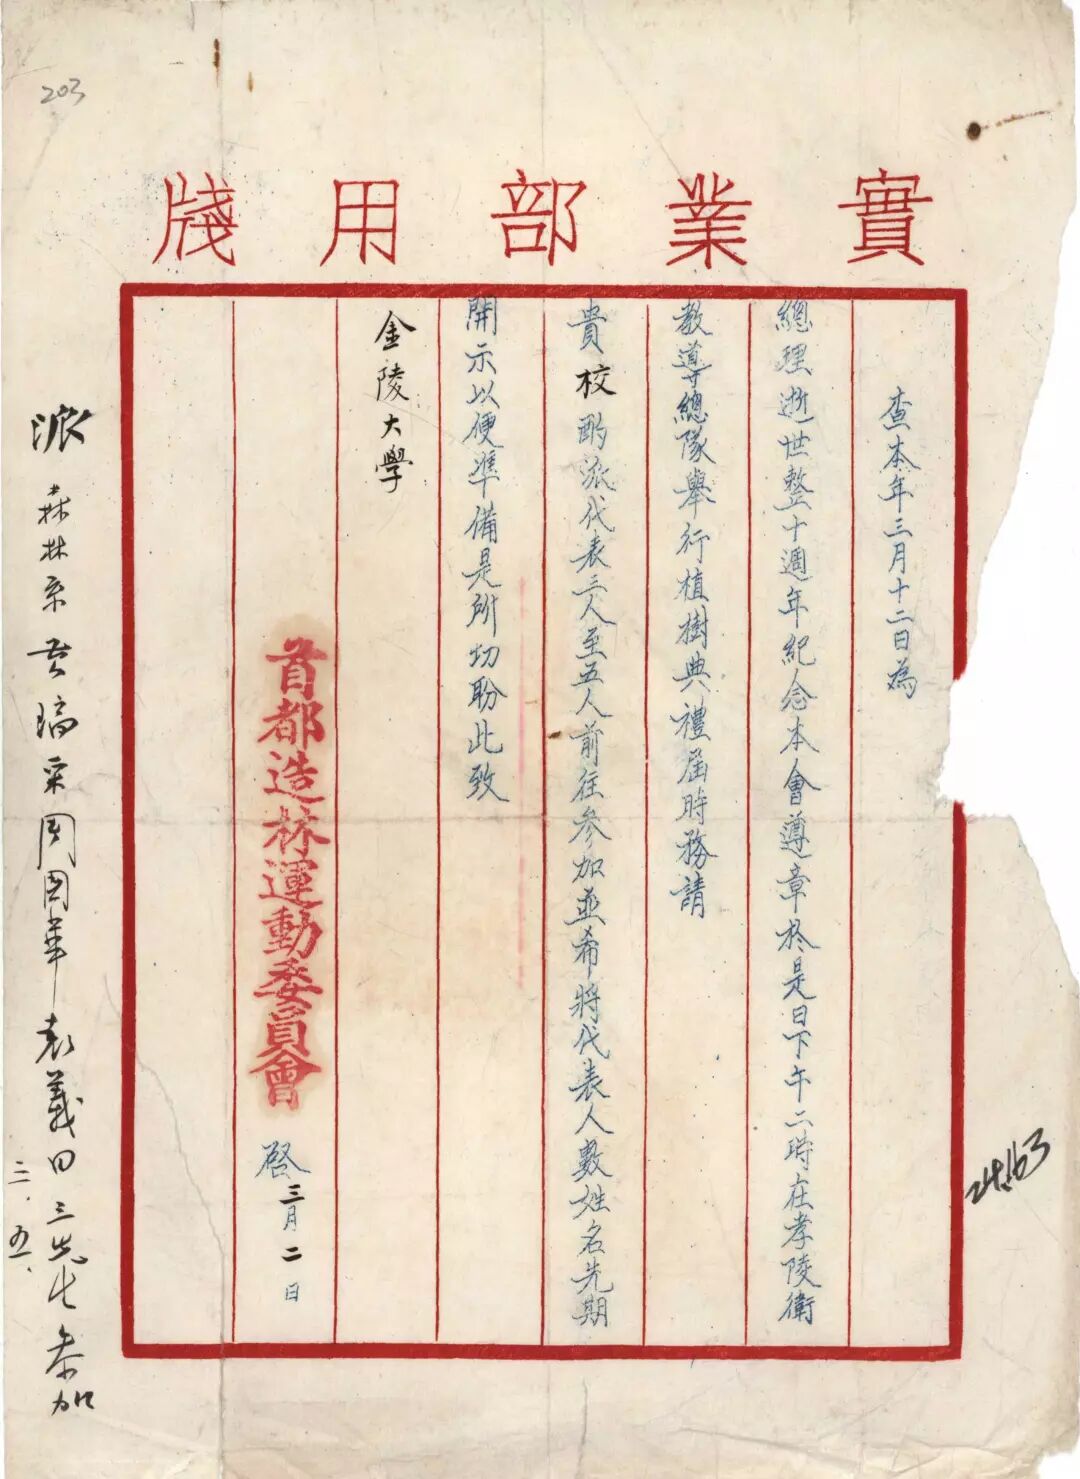 203
實業部用牋
查本年三月十二日為
總理逝世整十週年紀念本會遵章於是日下午二時在孝陵衛
教導總隊舉行植樹典禮屆時務請
貴校酌派代表三人至五人前往參加並希將代表人數姓名先期
開示以便準備是所切盼此致
金陵大學
首都造林運動委員會
啟三月二日
派森林系 周國華 袁義田三先生參加
三.五.